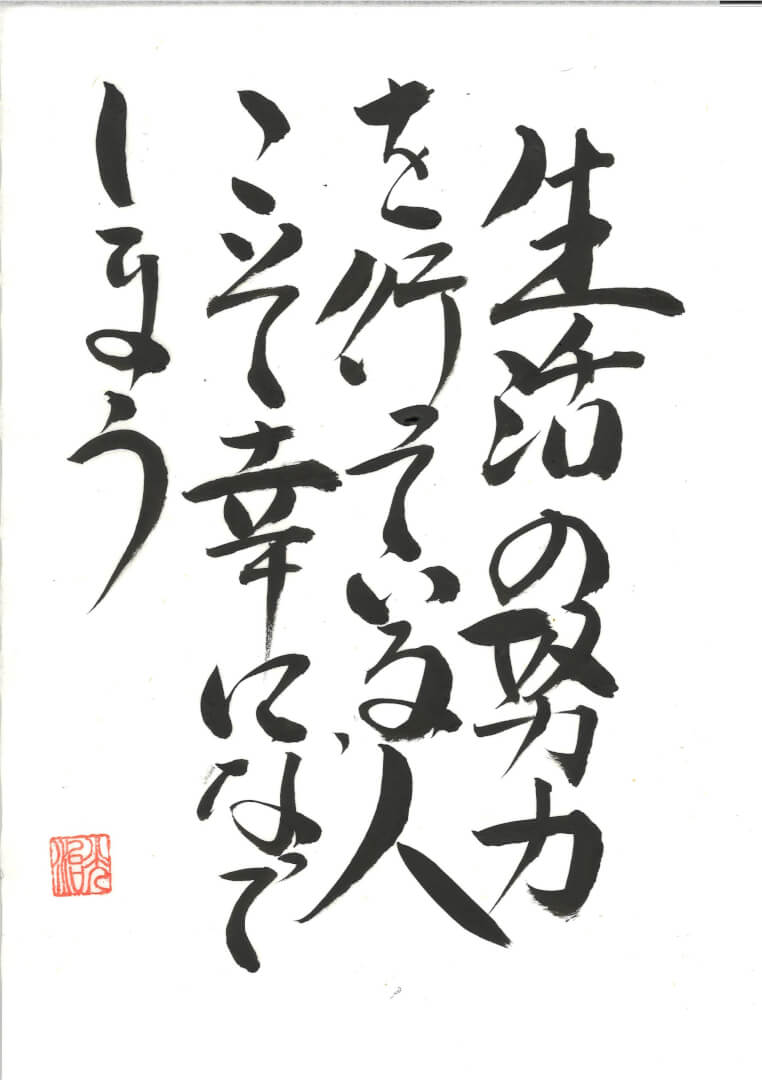 生活の努力
を行っている人
こそ幸になって
しまう